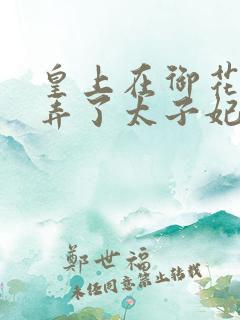 皇上在御花
弄了太子妃
鄭世福
未经同意禁止转载